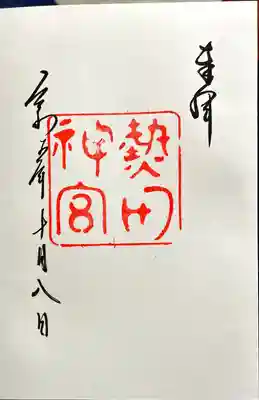 奉拝
熱田
神宮
令和五年十月八日